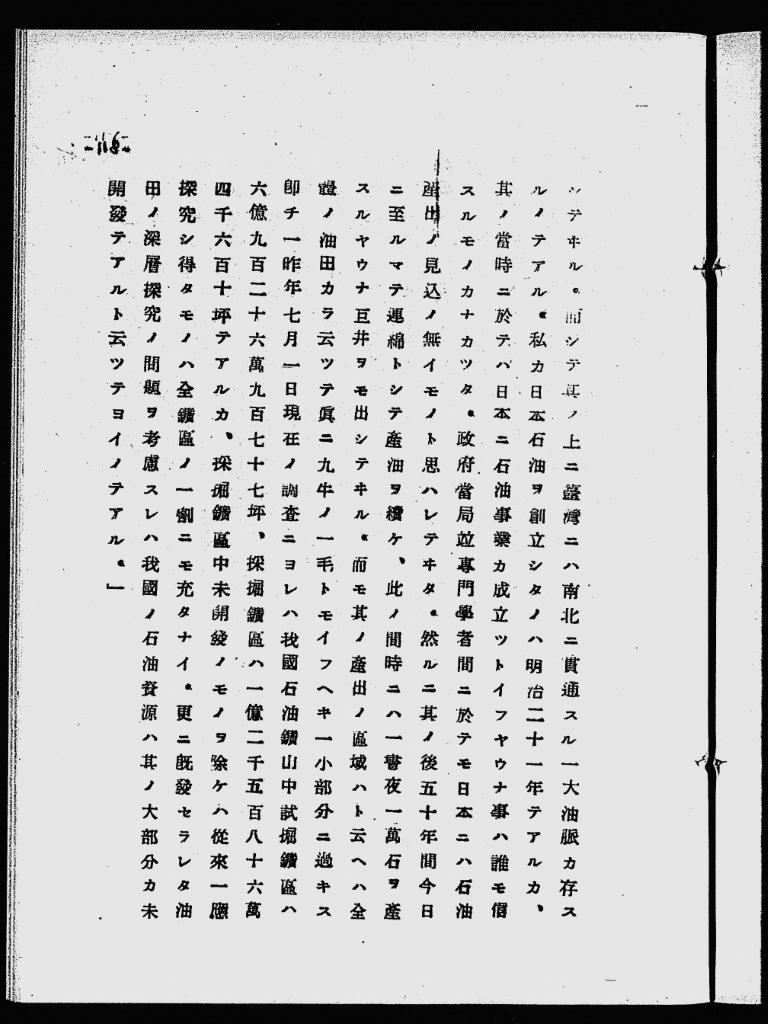 シテヰル。而シテ其ノ上ニ臺灣ニハ南北ニ貫通スル一大油脈カ存ス
ルノテアル。私カ日本石油ヲ創立シタノハ明治二十一年テアルカ、
其ノ當時ニ於テハ日本ニ石油事業カ成立ツトイフヤウナ事ハ誰モ信
スルモノカナカツタ。政府當局竝專門學者間ニ於テモ日本ニハ石油
產出ノ見込ノ無イモノト思ハレテヰタ。然ルニ其ノ後五十年間今日
ニ至ルマテ連綿トシテ產油ヲ續ケ、此ノ間時ニハ一晝夜一萬石ヲ產
スルヤウナ巨井ヲモ出シテヰル。而モ其ノ產出ノ區域ハト云ヘハ全
體ノ油田カラ云ツテ眞ニ九牛ノ一毛トモイフヘキ一小部分ニ過キス
卽チ一昨年七月一日現在ノ調査ニヨレハ我國石油鑛山中試掘鑛區ハ
六億九百二十六萬九百七十七坪、採掘鑛區ハ一億二千五百八十六萬
四千六百十坪テアルカ、採掘鑛區中未開發ノモノヲ除ケハ從來一應
探究シ得タモノハ全鑛區ノ一割ニモ充タナイ。更ニ旣發セラレタ油
田ノ深層探究ノ問題ヲ考慮スレハ我國ノ石油資源ハ其ノ大部分カ未
開發テアルト云ツテヨイノテアル。」